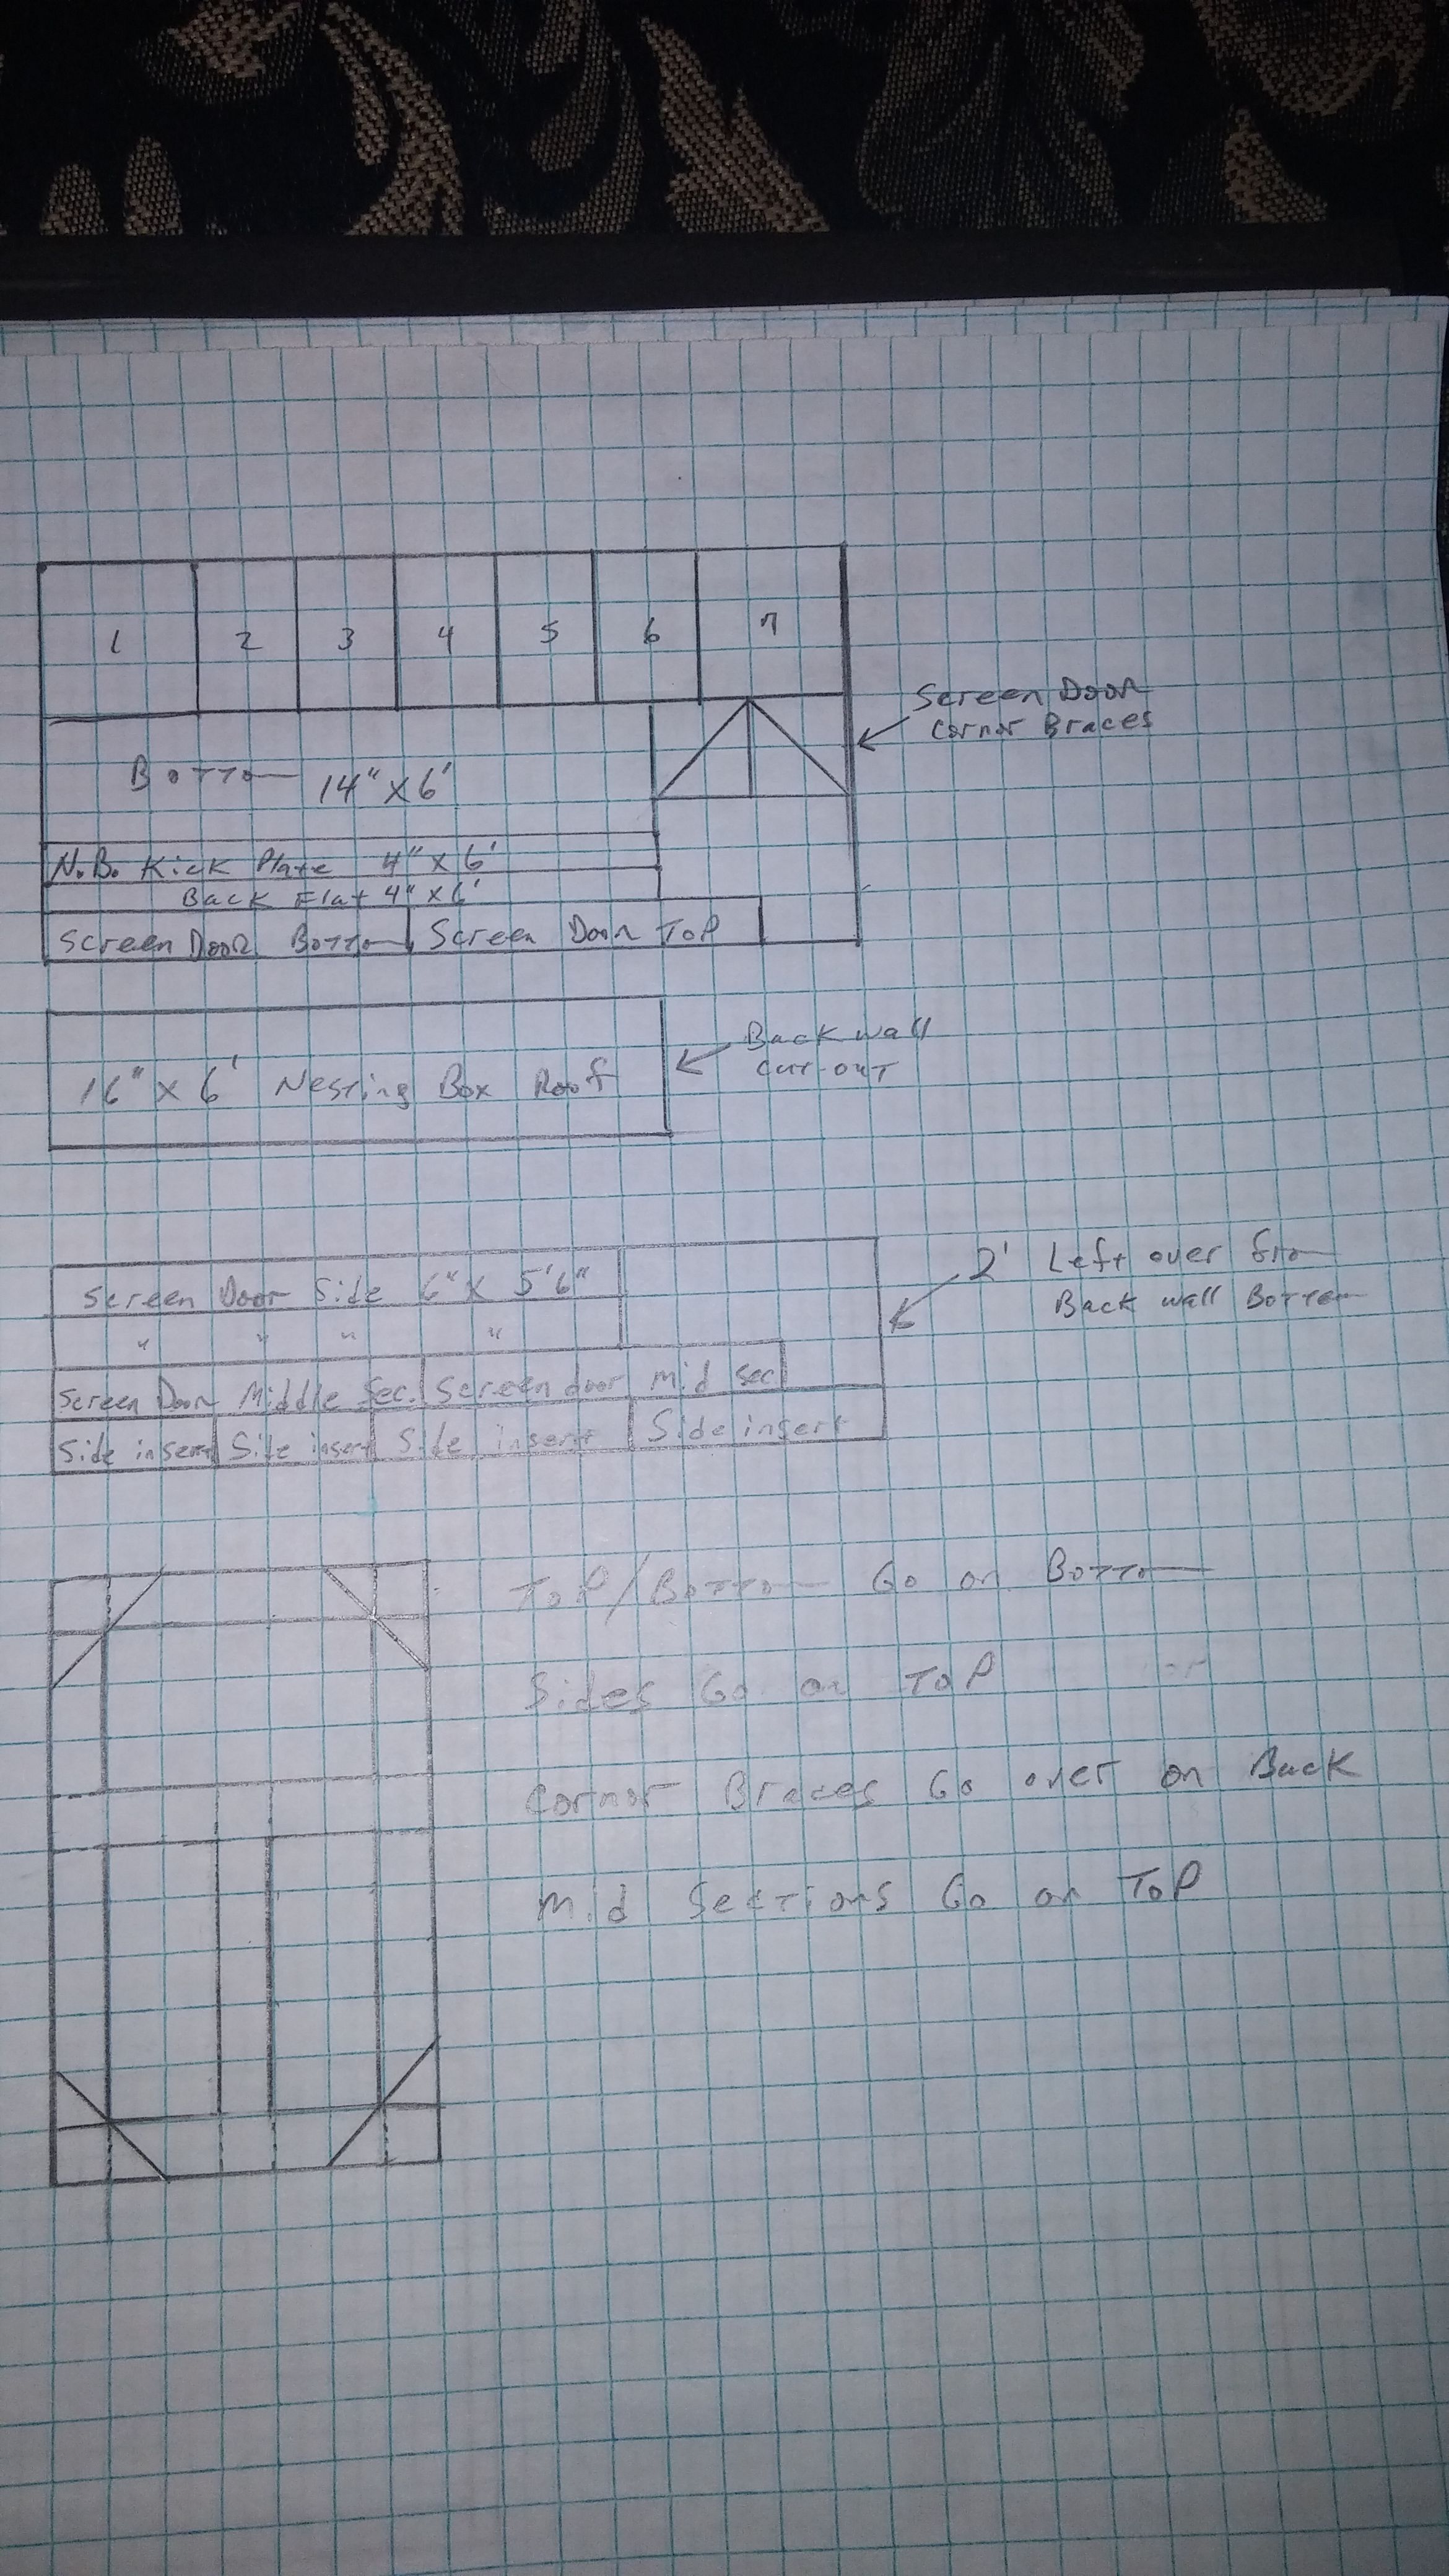 1 2 3 4 5 6 7
Screen Door
Cornor Braces
Bottom 14" X 6'
N.B. Kick Plate 4" X 6'
Back Flat 4" X 6'
Screen Door Bottom Screen Door Top
16" X 6' Nesting Box Roof
Back wall
cut-out
2' Left over from
Back wall Bottom
Screen Door Side 6" X 5'6"
" " " "
Screen Door Middle Sec. Screen door mid sec
Side insert Side insert Side insert Side insert
Top/Bottom Go on Bottom
Sides Go on Top
Cornor Braces Go over on Back
Mid Sections Go on Top